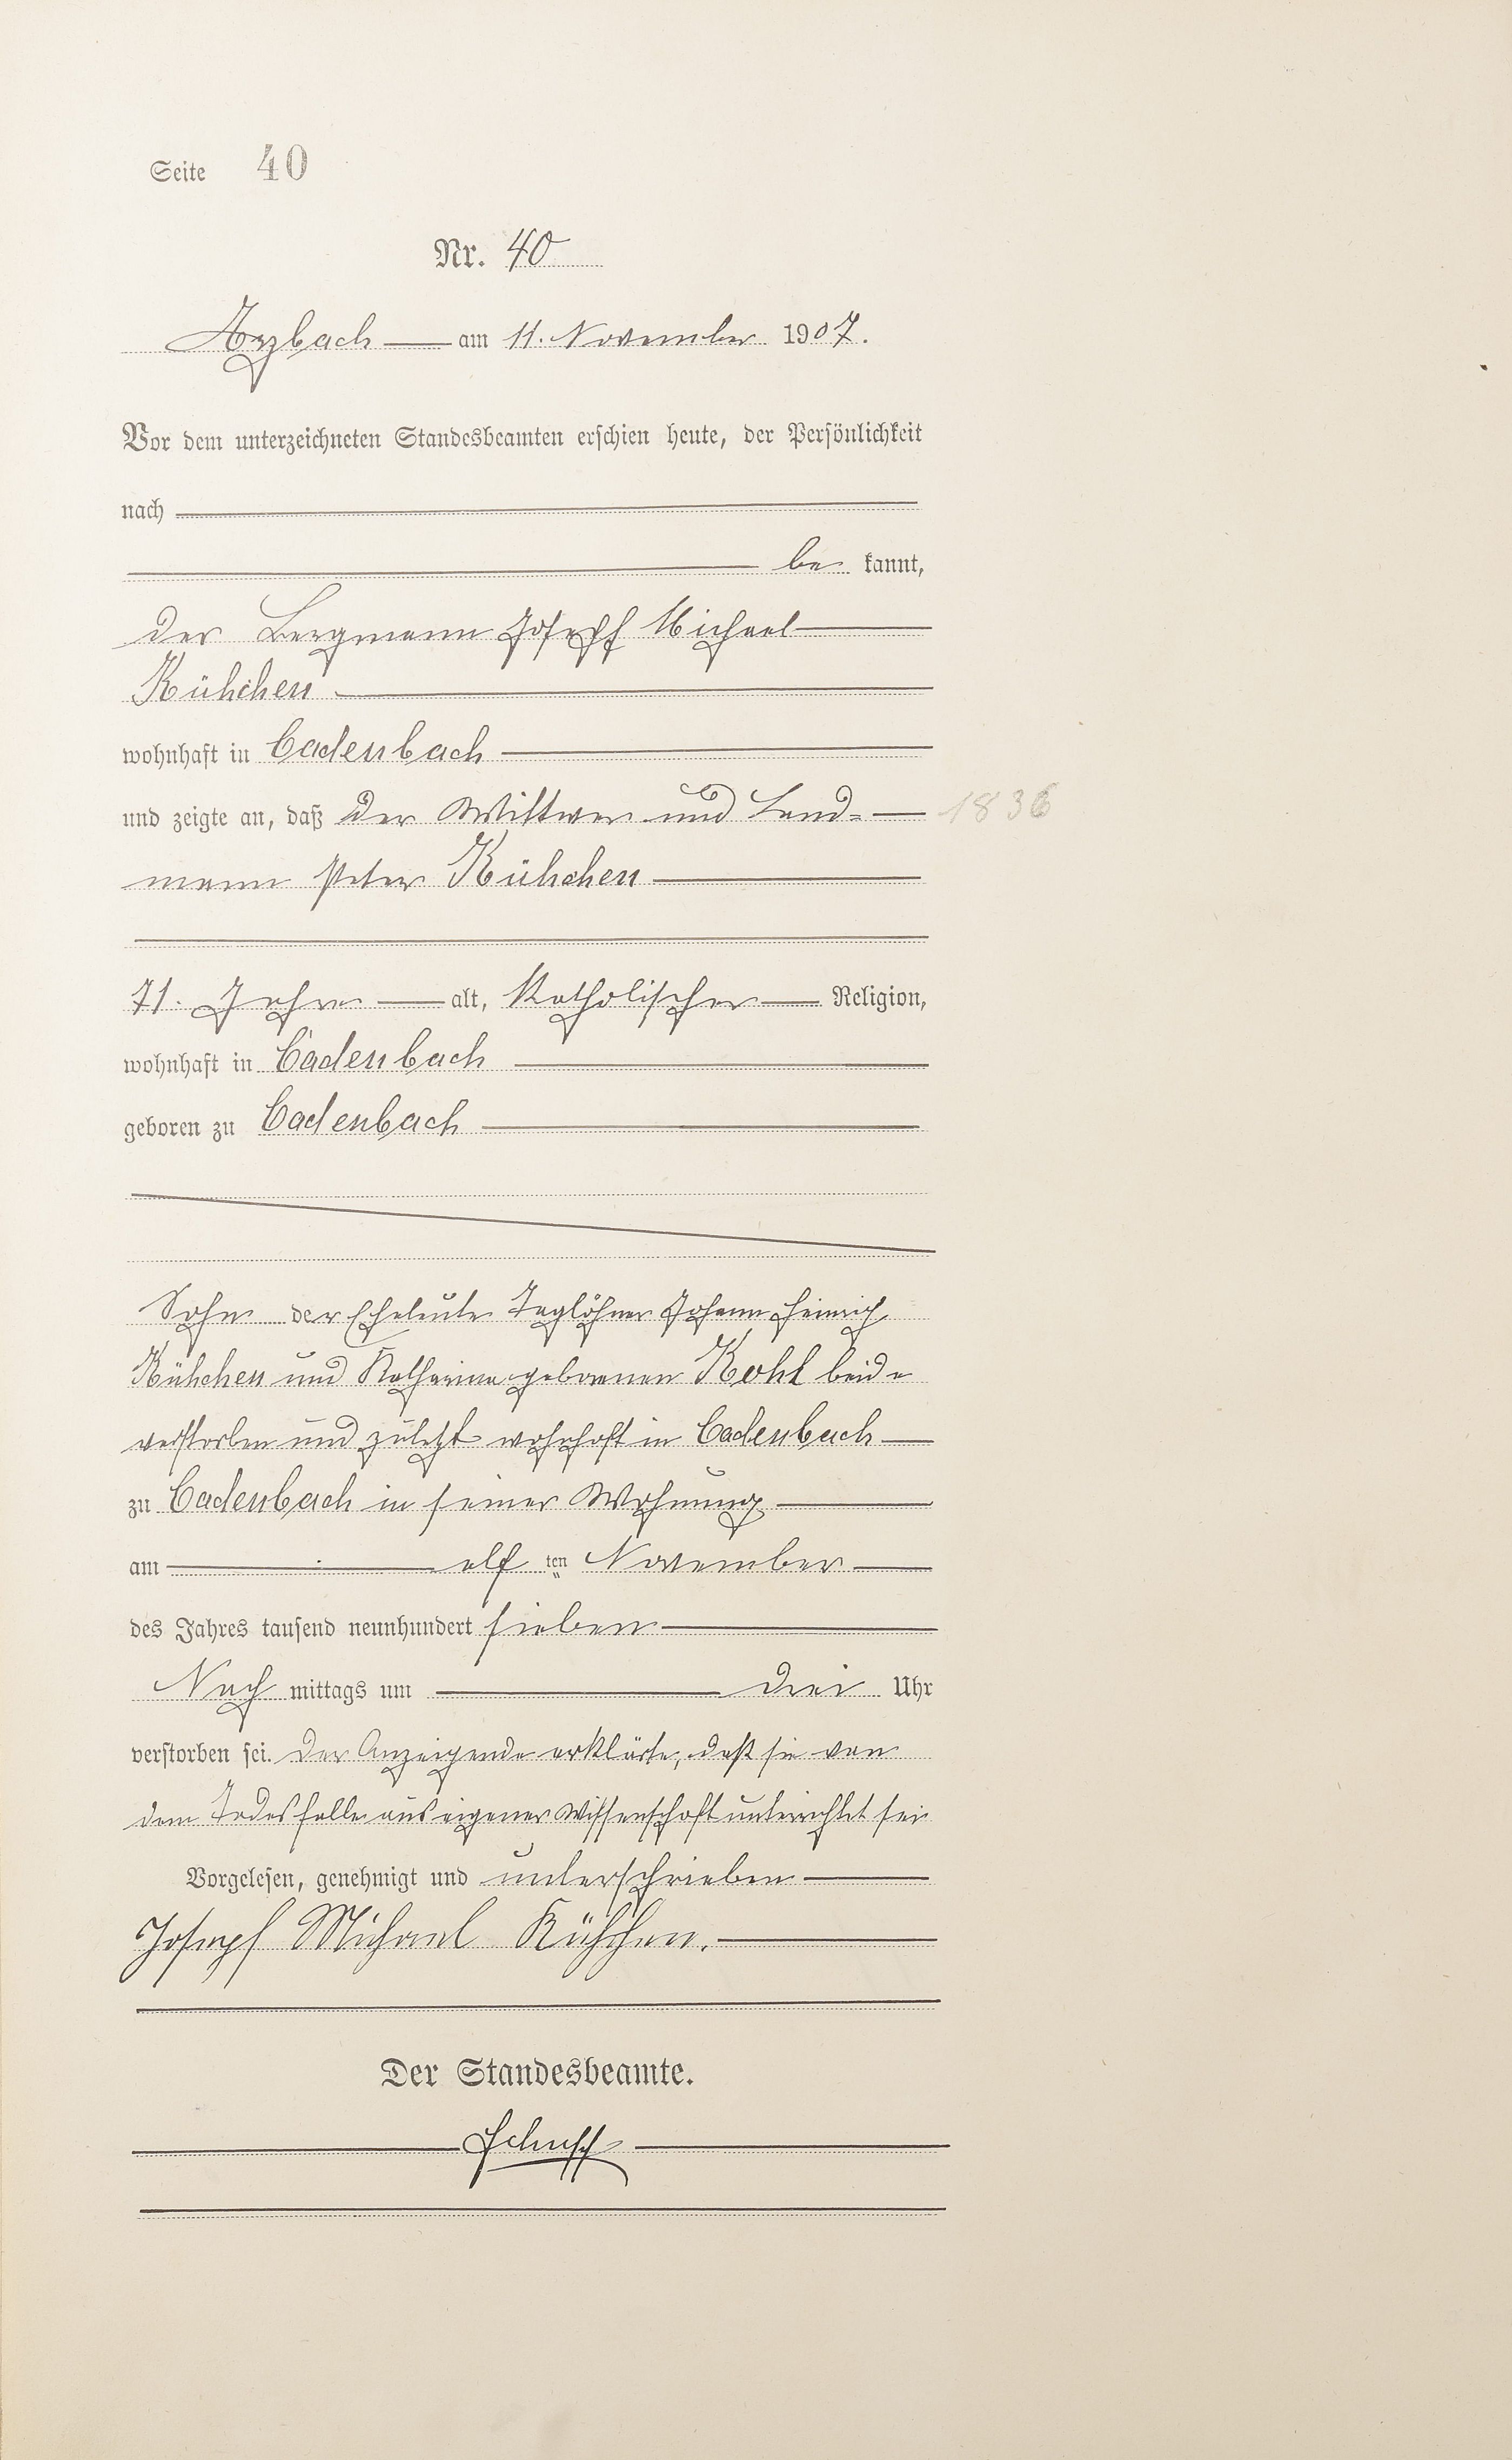 Seite 40
Nr. 40
Arzbach am 11. November 1907.
Vor dem unterzeichneten Standesbeamten erschien heute, der Persönlichkeit
nach
be kannt,
der Bergmann Joseph Michael
Kühchen
wohnhaft in Cadenbach
und zeigte an, daß der Wittwer und Land- 1836
mann Peter Kühchen
71. Jahre alt, Katholischer Religion,
wohnhaft in Cadenbach
geboren zu Cadenbach
Sohn der Eheleute Taglöhner Johann Heinrich
Kühchen und Katharina geborenen Kohl beide
verstorben und zuletzt wohnhaft in Cadenbach
zu Cadenbach in seiner Wohnung
am elf ten November
des Jahres tausend neunhundert sieben
Nach mittags um drei Uhr
verstorben sei. Der Anzeigende erklärte, daß sie von
dem Todesfalle aus eigener Wissenschaft unterrichtet sei
Vorgelesen, genehmigt und unterschrieben
Joseph Michael Kühchen.
Der Standesbeamte.